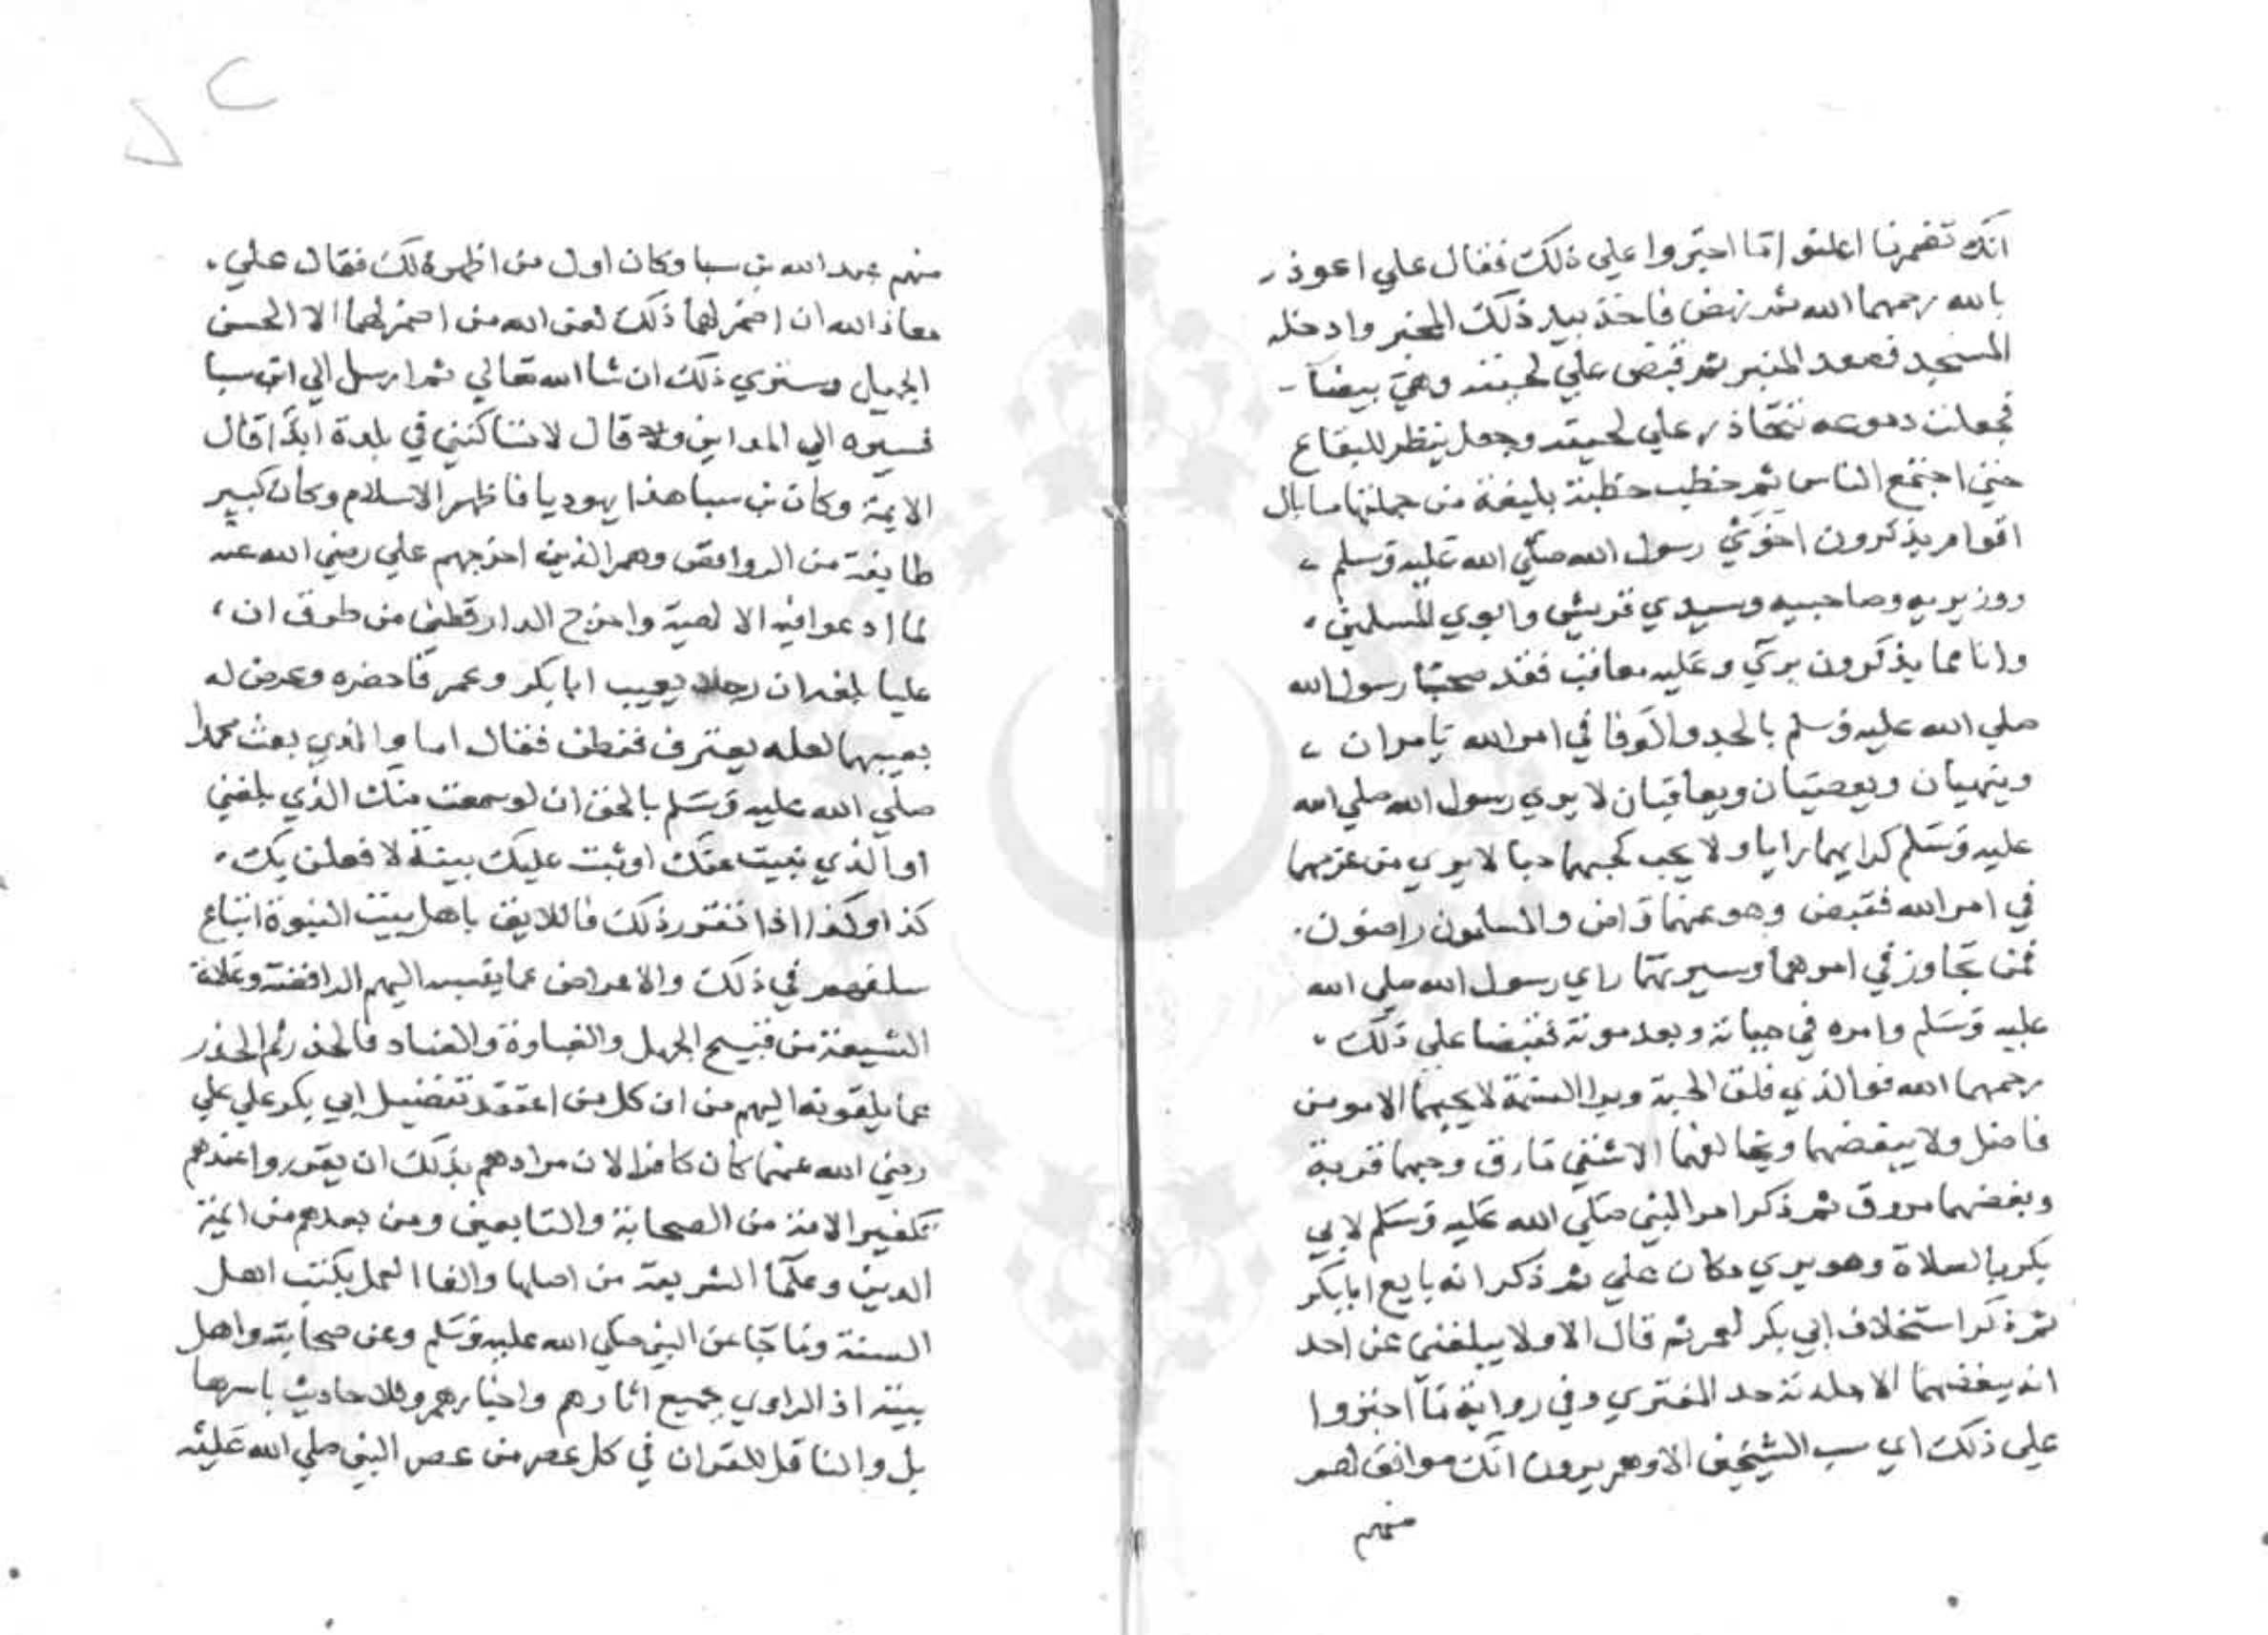 انك تضمر ما اعلنوا ما اجتروا على ذلك فقال علي اعوذ
بالله رحمهما الله ثم نهض فاخذ بيد ذلك المخبر وادخله
المسجد فصعد المنبر ثم قبض علي لحيته وهي بيضآ
فجعلت دموعه تتحاذر علي لحيته وجعل ينظر للبقاع
حتي اجتمع الناس ثم خطب خطبة بليغة من جملتها ما بال
اقوام يذكرون اخوي رسول الله صلي الله عليه وسلم
ووزيريه وصاحبيه وسيدي قريش وابوي المسلمين
وانا مما يذكرون بري وعليه معاقب فقد صحبا رسول الله
صلي الله عليه وسلم بالجد والوفا في امر الله يامران
وينهيان ويعصيان ويعاقبان لا يري رسول الله صلي الله
عليه وسلم كرايهما رايا ولا يحب كحبهما حبا لا يري من عزمهما
في امر الله فقبض وهو عنهما راض والمسلمون راضون
فمن تجاوز في امرهما وسيرتهما راي رسول الله صلي الله
عليه وسلم وامره في حياته وبعد موته فقبضا علي ذلك
رحمهما الله فوالذي فلق الحبة وبرا النسمة لا يحبهما الا مومن
فاضل ولا يبغضهما ويخالفهما الا شقي مارق وحبهما قربة
وبغضهما مروق ثم ذكر امر النبي صلي الله عليه وسلم لابي
بكر بالصلاة وهو يري مكان علي ثم ذكر انه بايع ابابكر
ثم ذكر استخلاف ابي بكر لعمر ثم قال الا ولا يبلغني عن احد
انه يبغضهما الا جلدته حد المفتري وفي رواية ما اجتروا
علي ذلك اي سب الشيخين الا وهم يرون انك موافق لهم
منهم
منهم عبد الله بن سبا وكان اول من اظهر ذلك فقال علي
معاذ الله ان اضمر لهما ذلك لعن الله من اضمر لهما الا الحسن
الجميل وستري ذلك ان شا الله تعالي ثم ارسل الي ابن سبا
فسيره الي المداين و قال لا تساكنني في بلدة ابدا قال
الايمة وكان بن سبا هذا يهوديا فاظهر الاسلام وكان كبير
طايفة من الروافض وهم الذين اخرجهم علي رضي الله عنه
لما ادعوا فيه الالهية واخرج الدارقطني من طرق ان
عليا بلغه ان رجلا يعيب ابابكر وعمر فاحضره وعرض له
بعيبهما لعله يعترف ففطن فقال اما والذي بعث محمدا
صلي الله عليه وسلم بالحق ان لو سمعت منك الذي بلغني
او الذي نبيت عنك او ثبت عليك بينة لافعلن بك
كذا وكذا اذا تقرر ذلك فاللايق باهل بيت النبوة اتباع
سلفهم في ذلك والاعراض عما ينسبه اليهم الرافضة وغلاة
الشيعة من قبيح الجهل والغباوة والعناد فالحذر ثم الحذر
عما يلقونه اليهم من ان كل من اعتقد تفضيل ابي بكر علي علي
رضي الله عنهما كان كافرا لان مرادهم بذلك ان يقرروا عندهم
تكفير الامة من الصحابة والتابعين ومن بعدهم من ايمة
الدين وعلما الشريعة من اصلها والغا العمل بكتب اهل
السنة وما جا عن النبي صلي الله عليه وسلم وعن صحابته واهل
بيته اذ الراوي جميع اثارهم واخبارهم وللاحاديث باسرها
بل والناقل للقران في كل عصر من عصر النبي صلي الله عليه